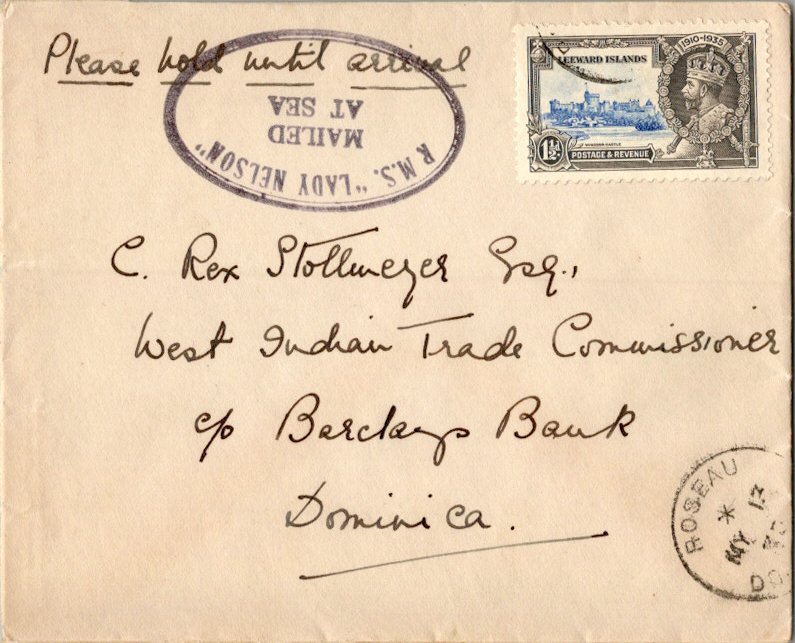 Please hold until arrival
R.M.S. "LADY NELSON"
MAILED
AT SEA
1910-1935
LEEWARD ISLANDS
WINDSOR CASTLE
1½d
POSTAGE & REVENUE
C. Rex Stollmeyer Esq.,
West Indian Trade Commissioner
c/o Barclays Bank
Dominica.
ROSEAU
*
MY 13
DO